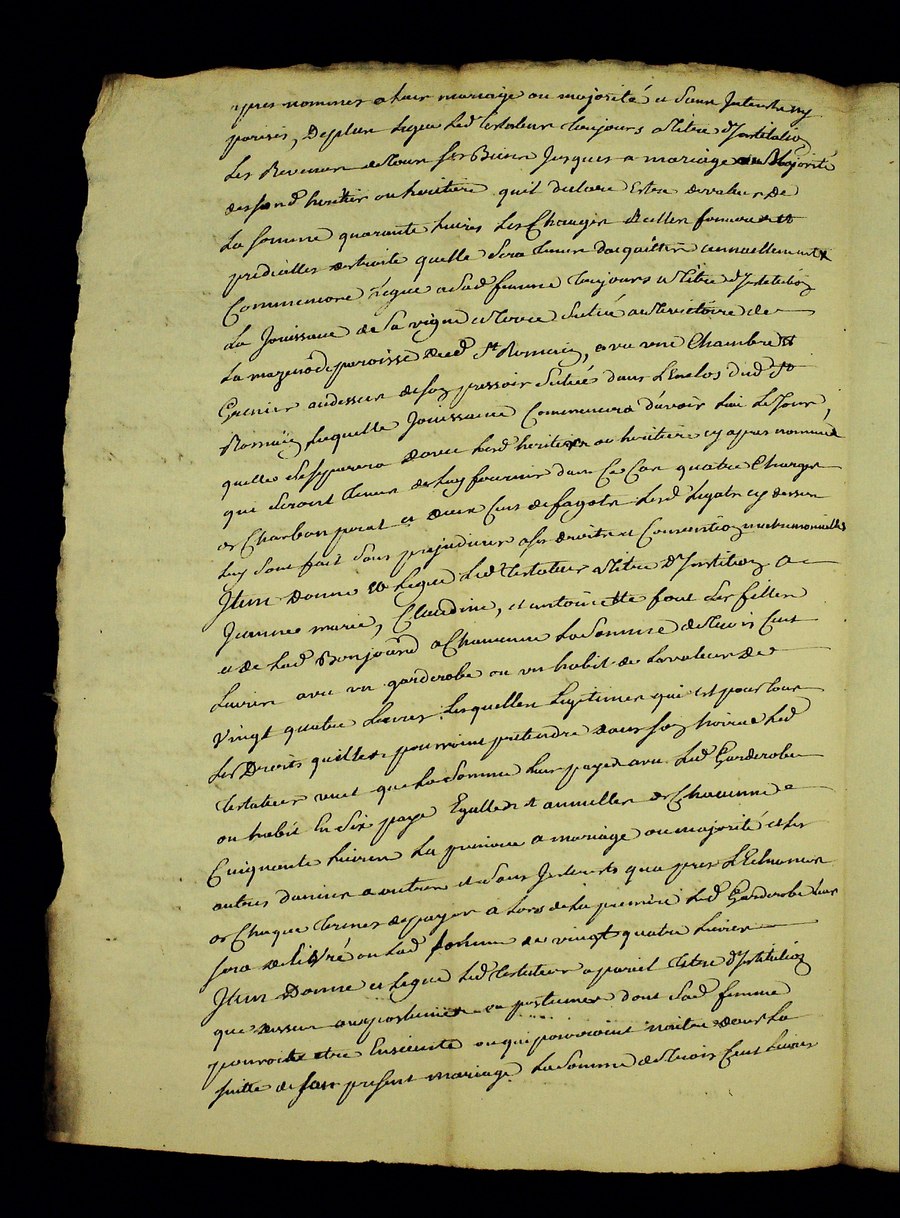 apres nommés a leur mariage ou majorité et sans Interets ny
parisis, Deplus legue led testateur toujours a titre d'Institution
Les Revenus de tous ses Biens Jusques a mariage ou Majorité
de sond heritier ou heritiere quil declare Estre de valeur de
La somme quarante livres Les Charges d'icelles fonciere et
predialles detraite quelle sera tenue Dacquitter annuellement
Comme encore legue a sad femme toujours a titre d'Institution
La Jouissance de sa vigne et terre Scituée au territoire de
La paroisse dud St Romain, avec une Chambre et
Grenier audessus de son pressoir Scituée dans L'Enclos dud St
Romain laquelle Jouissance Commencera davoir lieu Le Jour,
quelle se separera davec led heritier ou heritiere cy apres nommé
qui seront tenus de luy fournir dans Ce Cas quatre Charges
de Charbon et deux Cens de fagots Lesd legats cy dessus
luy sont fait sans prejudicier a ses droits et Conventions matrimonialles
Item Donne et legue led testateur a titre d'Institution a
Jeanne marie, Claudine, et antoinette ses filles
et de lad Bonjourd a Chacune La somme de trois Cent
Livres avec un garderobe ou un habit de La valeur de
vingt quatre Livres, Lesquelles legitimes qui est pour tous
Les Droits quilles pourroint pretendre dans son hoirie led
testateur veut que La somme leur payé avec led Garderobe
ou habit En six paye Egalles et annuelles de Chacune
Cinquante Livres La premiere a mariage ou majorité et les
autres dannée a autre et sans Interets qu apres L'Echeance
de Chaque termes de payer a Lors de La premiere led Garderobe leur
sera delivré ou lad somme de vingt quatre Livres
Item Donne et legue led testateur a pareil titre d'Institution
que dessus aux postumes ou postumes dont sad femme
pourroit etre Enceinte ou qui pourroient naitre dans La
suitte de son present mariage La somme de trois Cent Livres